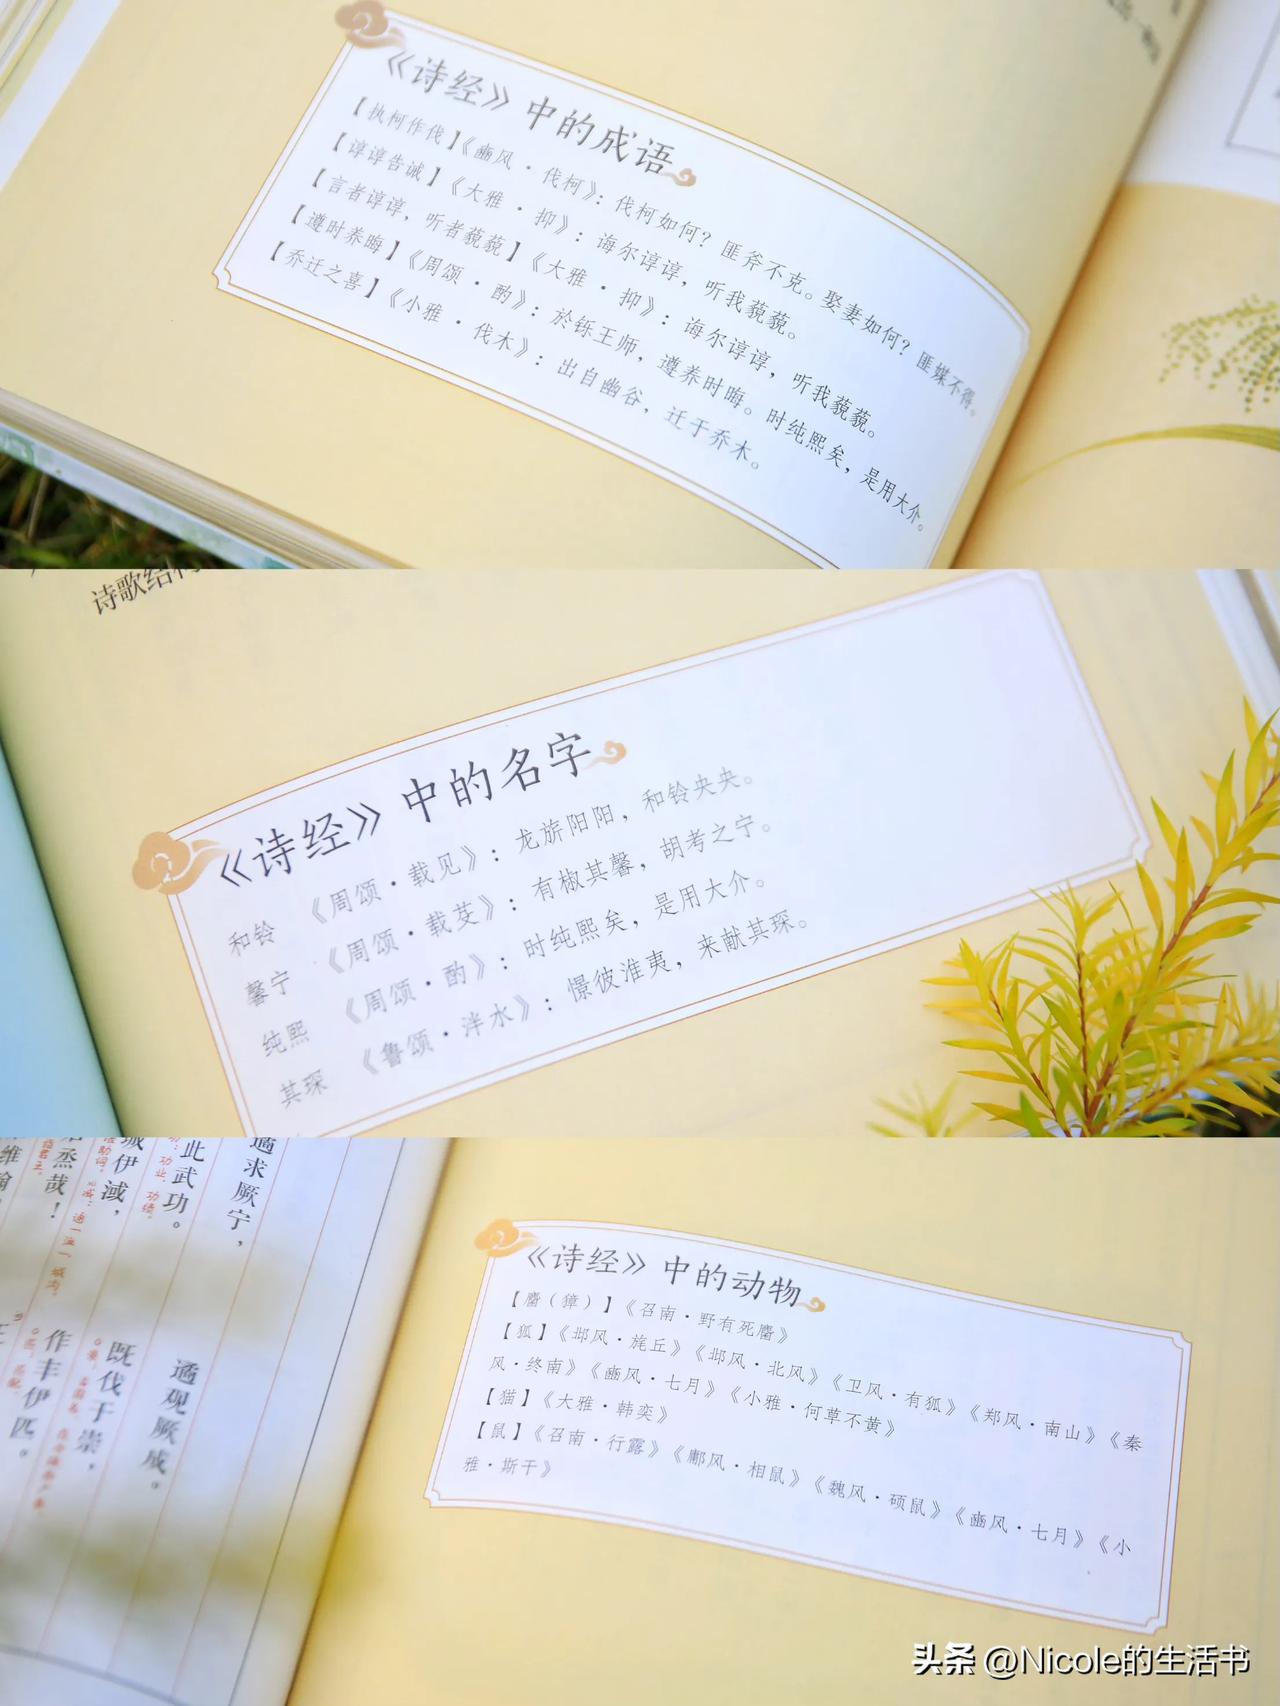 《诗经》中的成语
【执柯作伐】《豳风·伐柯》：伐柯如何？匪斧不克。娶妻如何？匪媒不得。
【谆谆告诫】《大雅·抑》：诲尔谆谆，听我藐藐。
【言者谆谆，听者藐藐】《大雅·抑》：诲尔谆谆，听我藐藐。
【遵时养晦】《周颂·酌》：於铄王师，遵养时晦。时纯熙矣，是用大介。
【乔迁之喜】《小雅·伐木》：出自幽谷，迁于乔木。
诗歌结构
《诗经》中的名字
和铃 《周颂·载见》：龙旂阳阳，和铃央央。
馨宁 《周颂·载芟》：有椒其馨，胡考之宁。
纯熙 《周颂·酌》：时纯熙矣，是用大介。
其琛 《鲁颂·泮水》：憬彼淮夷，来献其琛。
遹求厥宁，
遹观厥成。
此武功。
既伐于崇，
城伊淢，
作丰伊匹。
烝哉！
维翰
《诗经》中的动物
【麕（獐）】《召南·野有死麕》
【狐】《邶风·旄丘》《邶风·北风》《卫风·有狐》《郑风·南山》《秦
风·终南》《豳风·七月》《小雅·何草不黄》
【猫】《大雅·韩奕》
【鼠】《召南·行露》《鄘风·相鼠》《魏风·硕鼠》《豳风·七月》《小
雅·斯干》
头条 @Nicole的生活书